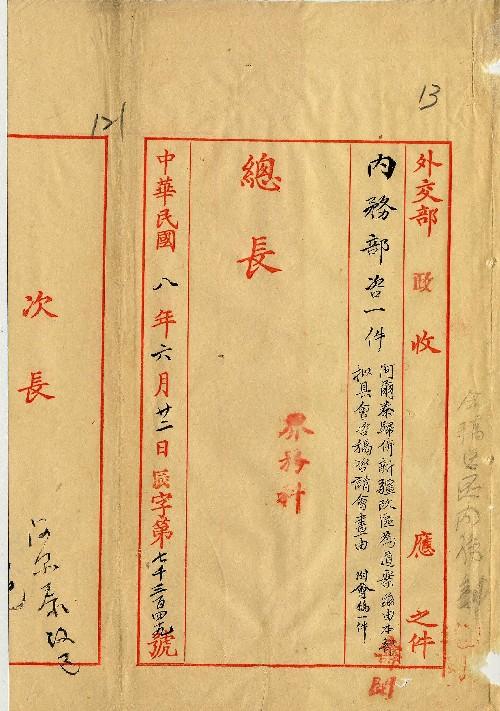 13
外交部 政 收 應 之件
內務部咨一件 阿爾泰歸併新疆改區為道案 由本部
拟具會咨稿咨請會畫由 附會稿一件
總長
界務科
中華民國八年六月廿二日辰字第七千三百四十九號
121
次長
阿尔泰改道